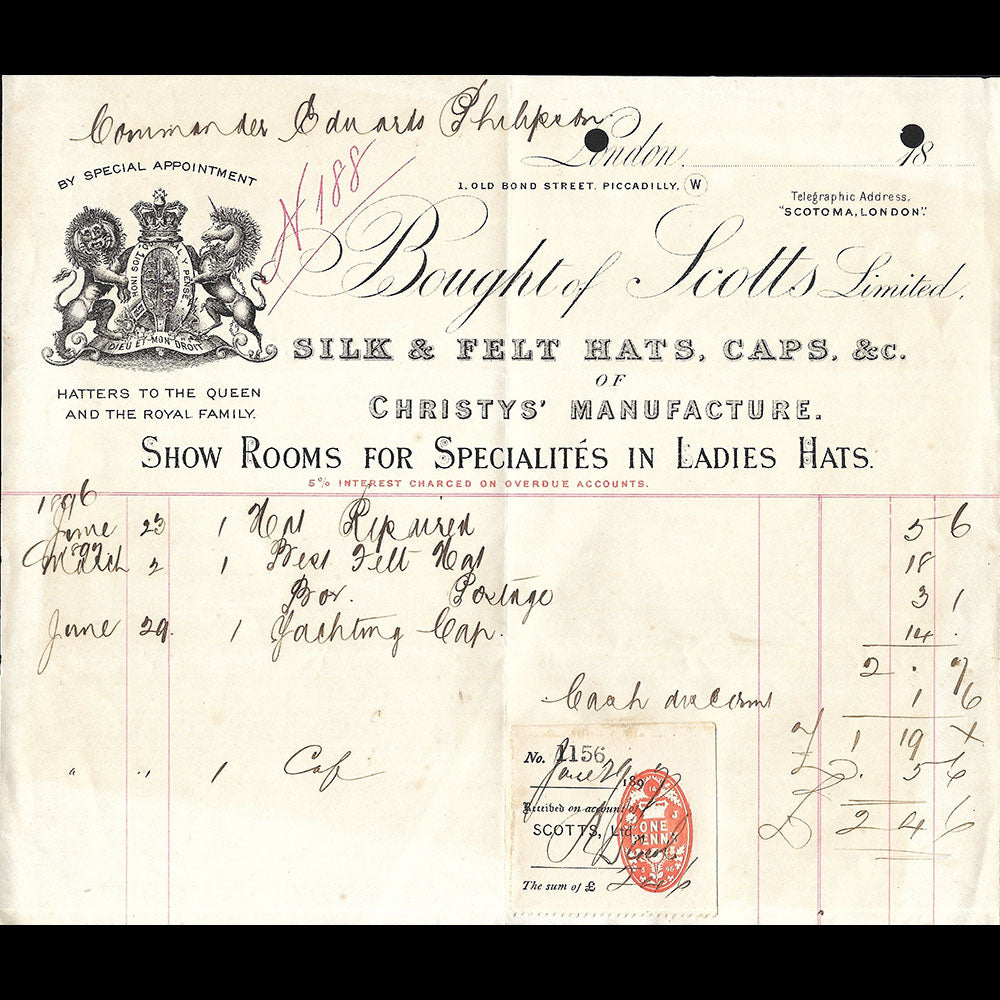 Commander Eduards Philipson
London 18
BY SPECIAL APPOINTMENT
№ 188
1. OLD BOND STREET. PICCADILLY. W
Telegraphic Address,
"SCOTOMA, LONDON".
Bought of Scotts Limited.
HONI SOIT QUI MAL Y PENSE
DIEU ET MON DROIT
SILK & FELT HATS, CAPS, &c.
OF
HATTERS TO THE QUEEN
AND THE ROYAL FAMILY.
CHRISTYS' MANUFACTURE.
SHOW ROOMS FOR SPECIALITÉS IN LADIES HATS.
5% INTEREST CHARGED ON OVERDUE ACCOUNTS.
1896
June 23 1 Hat Repaired 5 6
1897
March 2 1 Best Felt Hat 18
Box. Postage 3 1
June 29. 1 Yachting Cap. 14 .
2 . 7
Cash discount 1 6
£ 1 19 1
" " 1 Cap 5 6
£ 2 4 6
No. 1156
June 29 1897
Received on account of
SCOTTS, Ltd.
ONE PENNY
The sum of £ 2 4 6